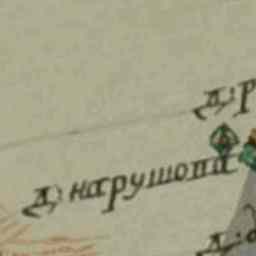 д: р
д: нарушопа
д: д